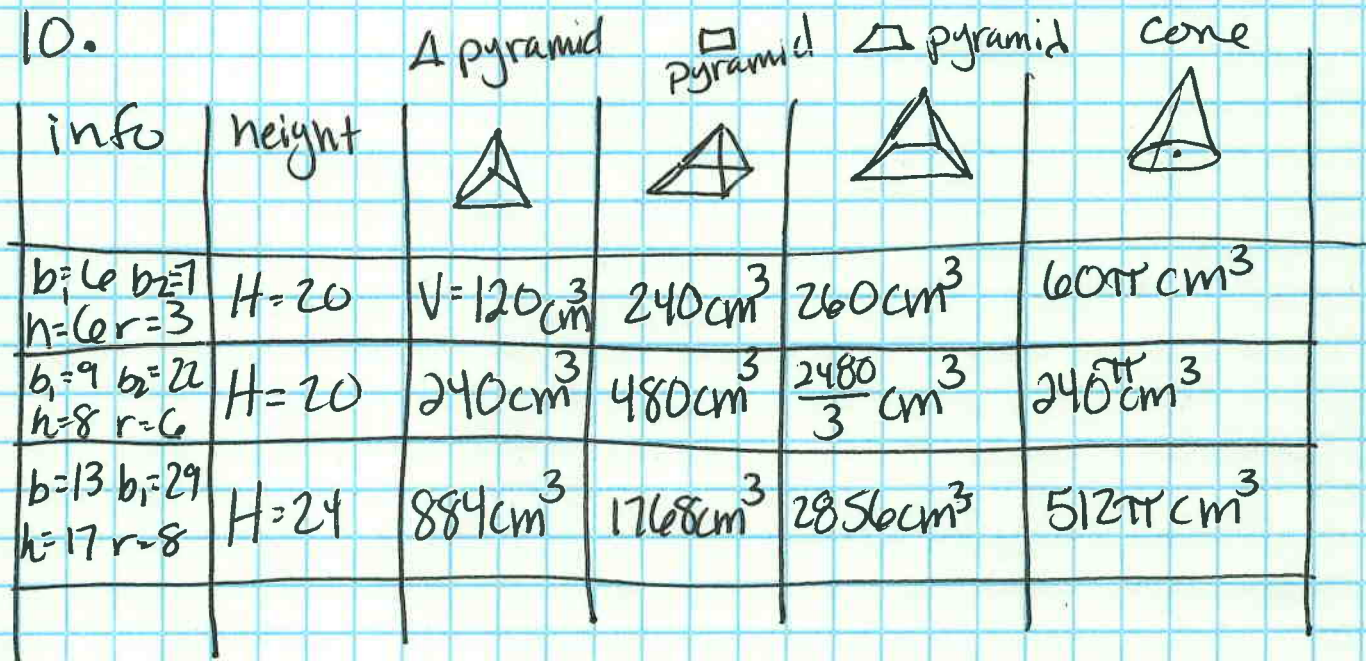 10.
△ pyramid ▭ pyramid ⏢ pyramid cone
info height
b₁=6 b₂=7
h=6 r=3
H=20 V=120cm³ 240cm³ 260cm³ 60π cm³
b₁=9 b₂=22
h=8 r=6
H=20 240cm³ 480cm³ 2480/3 cm³ 240π cm³
b=13 b₁=29
h=17 r=8
H=24 884cm³ 1768cm³ 2856cm³ 512π cm³